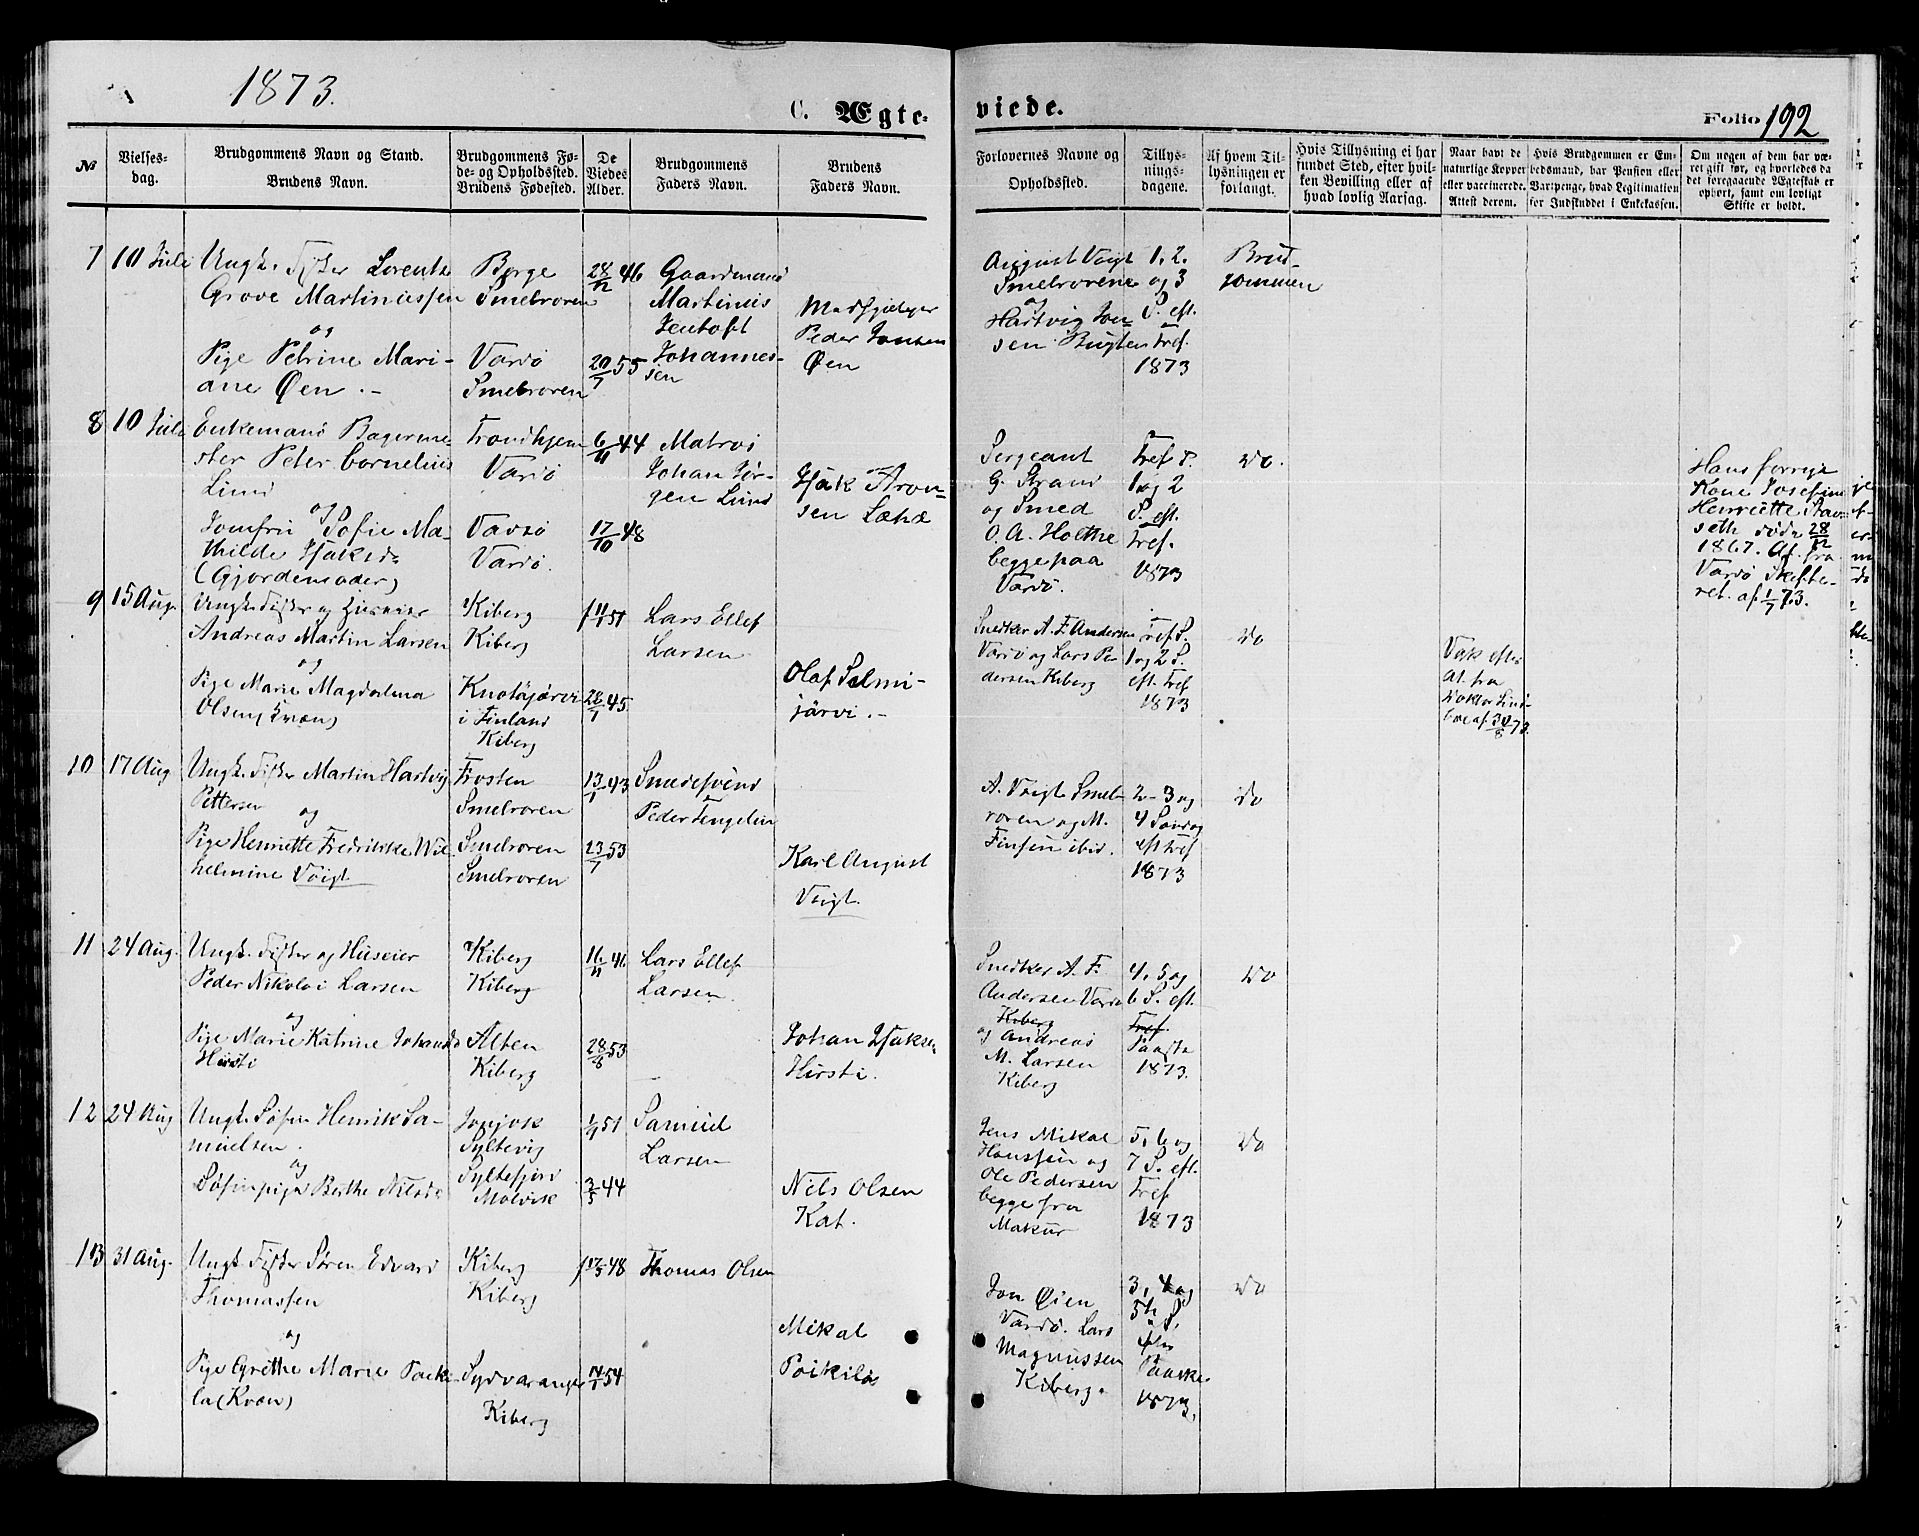 1873.
C. Ægte-
viede.
Folio 192
№
Vielses-
dag.
Brudgommens Navn og Stand.
Brudens Navn.
Brudgommens Fø-
de- og Opholdssted.
Brudens Fødested.
De
Viedes
Alder.
Brudgommens
Faders Navn.
Brudens
Faders Navn.
Forlovernes Navne og
Opholdssted.
Tillys-
nings-
dagene.
Af hvem Til-
lysningen er
forlangt.
Hvis Tillysning ei har
fundet Sted, efter hvil-
ken Bevilling eller af
hvad lovlig Aarsag.
Naar havt de
naturlige Kopper
eller vaccinerede.
Attest derom.
Hvis Brudgommen er Em-
bedsmand, har Pension eller
Vartpenge, hvad Legitimation
for Indskuddet i Enkekassen.
Om nogen af dem har væ-
ret gift før, og hvorledes da
det foregaaende Ægteskab er
ophørt, samt om lovligt
Skifte er holdt.
7
10 Juli
Ungk. Fisker Lorentz
Grove Martinussen
og
Pige Petrine Mari-
ane Øen .-
Borge
Smelroren
Vardö
Smelroren
28/12 46
20/7 55
Gaardmand
Martinus
Jentoft
Johannes-
sen
Madhjelper
Peder Jonsen
Øen
August Voigt
Smelrorene
og
Hartvig Jen-
sen Bugten
1. 2.
og 3
S. eft.
Tref.
1873
Brud-
gommen
8
10 Juli
Enkemand Bagerme-
ster Peter Cornelius
Lund
og
Jomfru Sofie Ma-
thilde Isaksd.
(Gjordemoder)
Trondhjem
Vardö
Vardö
Vardö.
6/11 44
17/10 48
Matros
Johan Jör-
gen Lund
Isak Aron-
sen Læhæ
Sergeant
G. Strand
og Smed
O. A. Holthe
begge paa
Vardö.
Tref S.
1 og 2
S. eft.
Tref.
1873
Do.
Hans forrige
Kone Josefine
Henriette
seth döde 28/12
1867. At. fra
Vardö Skifte-
ret. af 1/7 73.
9
15 Aug.
Ungk. Fisker og Huseier
Andreas Martin Larsen
og
Pige Marie Magdalena
Olsen (Kvæn)
Kiberg
Kiberg
Knotöjærvi
i Finland
Kiberg
51
28/1 45
Lars Ellef
Larsen
Olaf Selmi-
järvi .-
Snedker A. F. Andersen
Vardö og Lars Pe-
dersen Kiberg
Tref S.
1 og 2 S.
eft. Tref
1873
Do
Vak efter
At. fra
Doktor Lind-
boe af 30/8 73.
10
17 Aug
Ungk. Fisker Martin Hartvig
Pettersen
og
Pige Henriette Fredrikke Wil-
helmine Voigt
Frosten
Smelroren
Smelroren
Smelroren
13/1 43
23/7 53
Smedesvend
Peder Tengelin
Karl August
Voigt.
A. Voigt Smel-
roren og M.
Finsen ibid.
2- 3 og
4 Söndag
eft Tref
1873
Do
11
24 Aug.
Ungk. Fisker og Huseier
Peder Nikolai Larsen
og
Pige Marie Katrine Johansd.
Hirsti
Kiberg
Kiberg
Alten
Kiberg
16/11 46
28/8 53
Lars Ellef
Larsen.
Johan Isaksen
Hirsti.
Snedker A. F.
Andersen Vardö
Kiberg
og Andreas
M. Larsen
Kiberg
4, 5 og
6 S. eft.
Tref
Paaske
1873.
Do
12
24 Aug
Ungk. Søfin Henrik Sa-
muelsen.
og
Søfinpige Berthe Nilsd.
Syltevig
Syltefjord
Molvik
1/9 51
3/5 44
Samuel
Larsen
Nils Olsen
Kat.
Jens Mikal
Hanssen og
Ole Pedersen
begge fra
Makur
5, 6 og
7 S. eft.
Tref
1873
Do
13
31 Aug.
Ungk. Fisker Søren Edvard
Thomassen
og
Pige Grethe Marie Poiki-
la (Kvæn)
Kiberg
Kiberg
Sydvaranger
Kiberg
48
14/1 54
Thomas Olsen
Mikal
Poikila
Jon Øien
Vardö. Lars
Magnussen
Kiberg.
3, 4 og
5te S.
efter
Paaske
1873.
Do